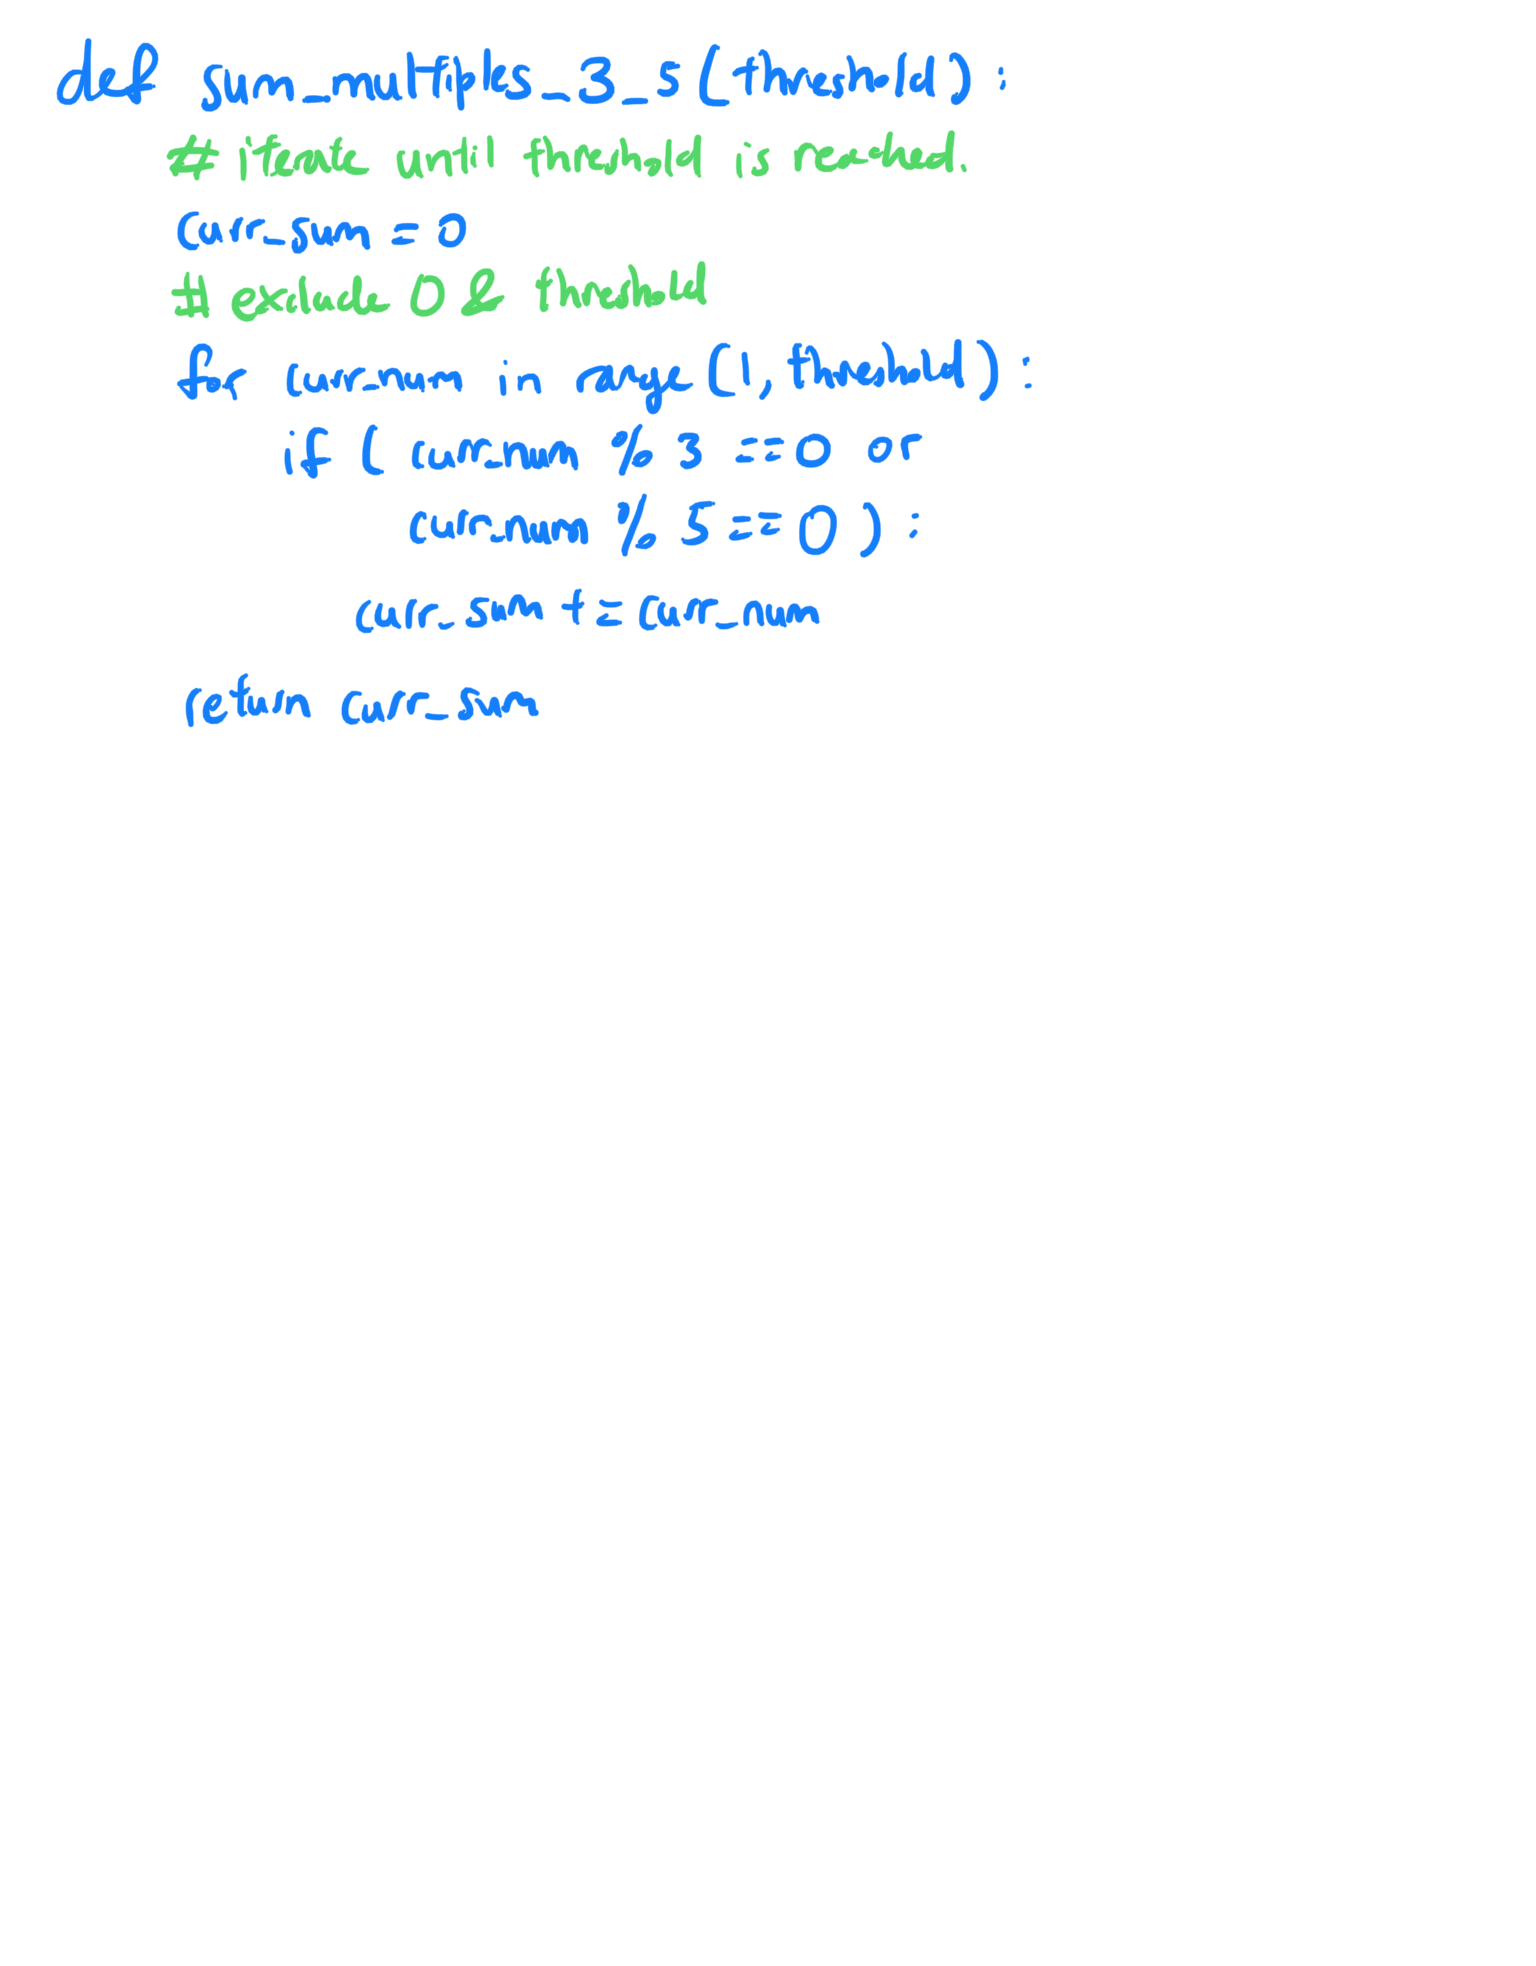 def sum_multiples_3_5(threshold):
# iterate until threshold is reached.
curr_sum = 0
# exclude 0 & threshold
for curr_num in range(1, threshold):
if ( curr_num % 3 == 0 or
curr_num % 5 == 0 ) :
curr_sum += curr_num
return curr_sum